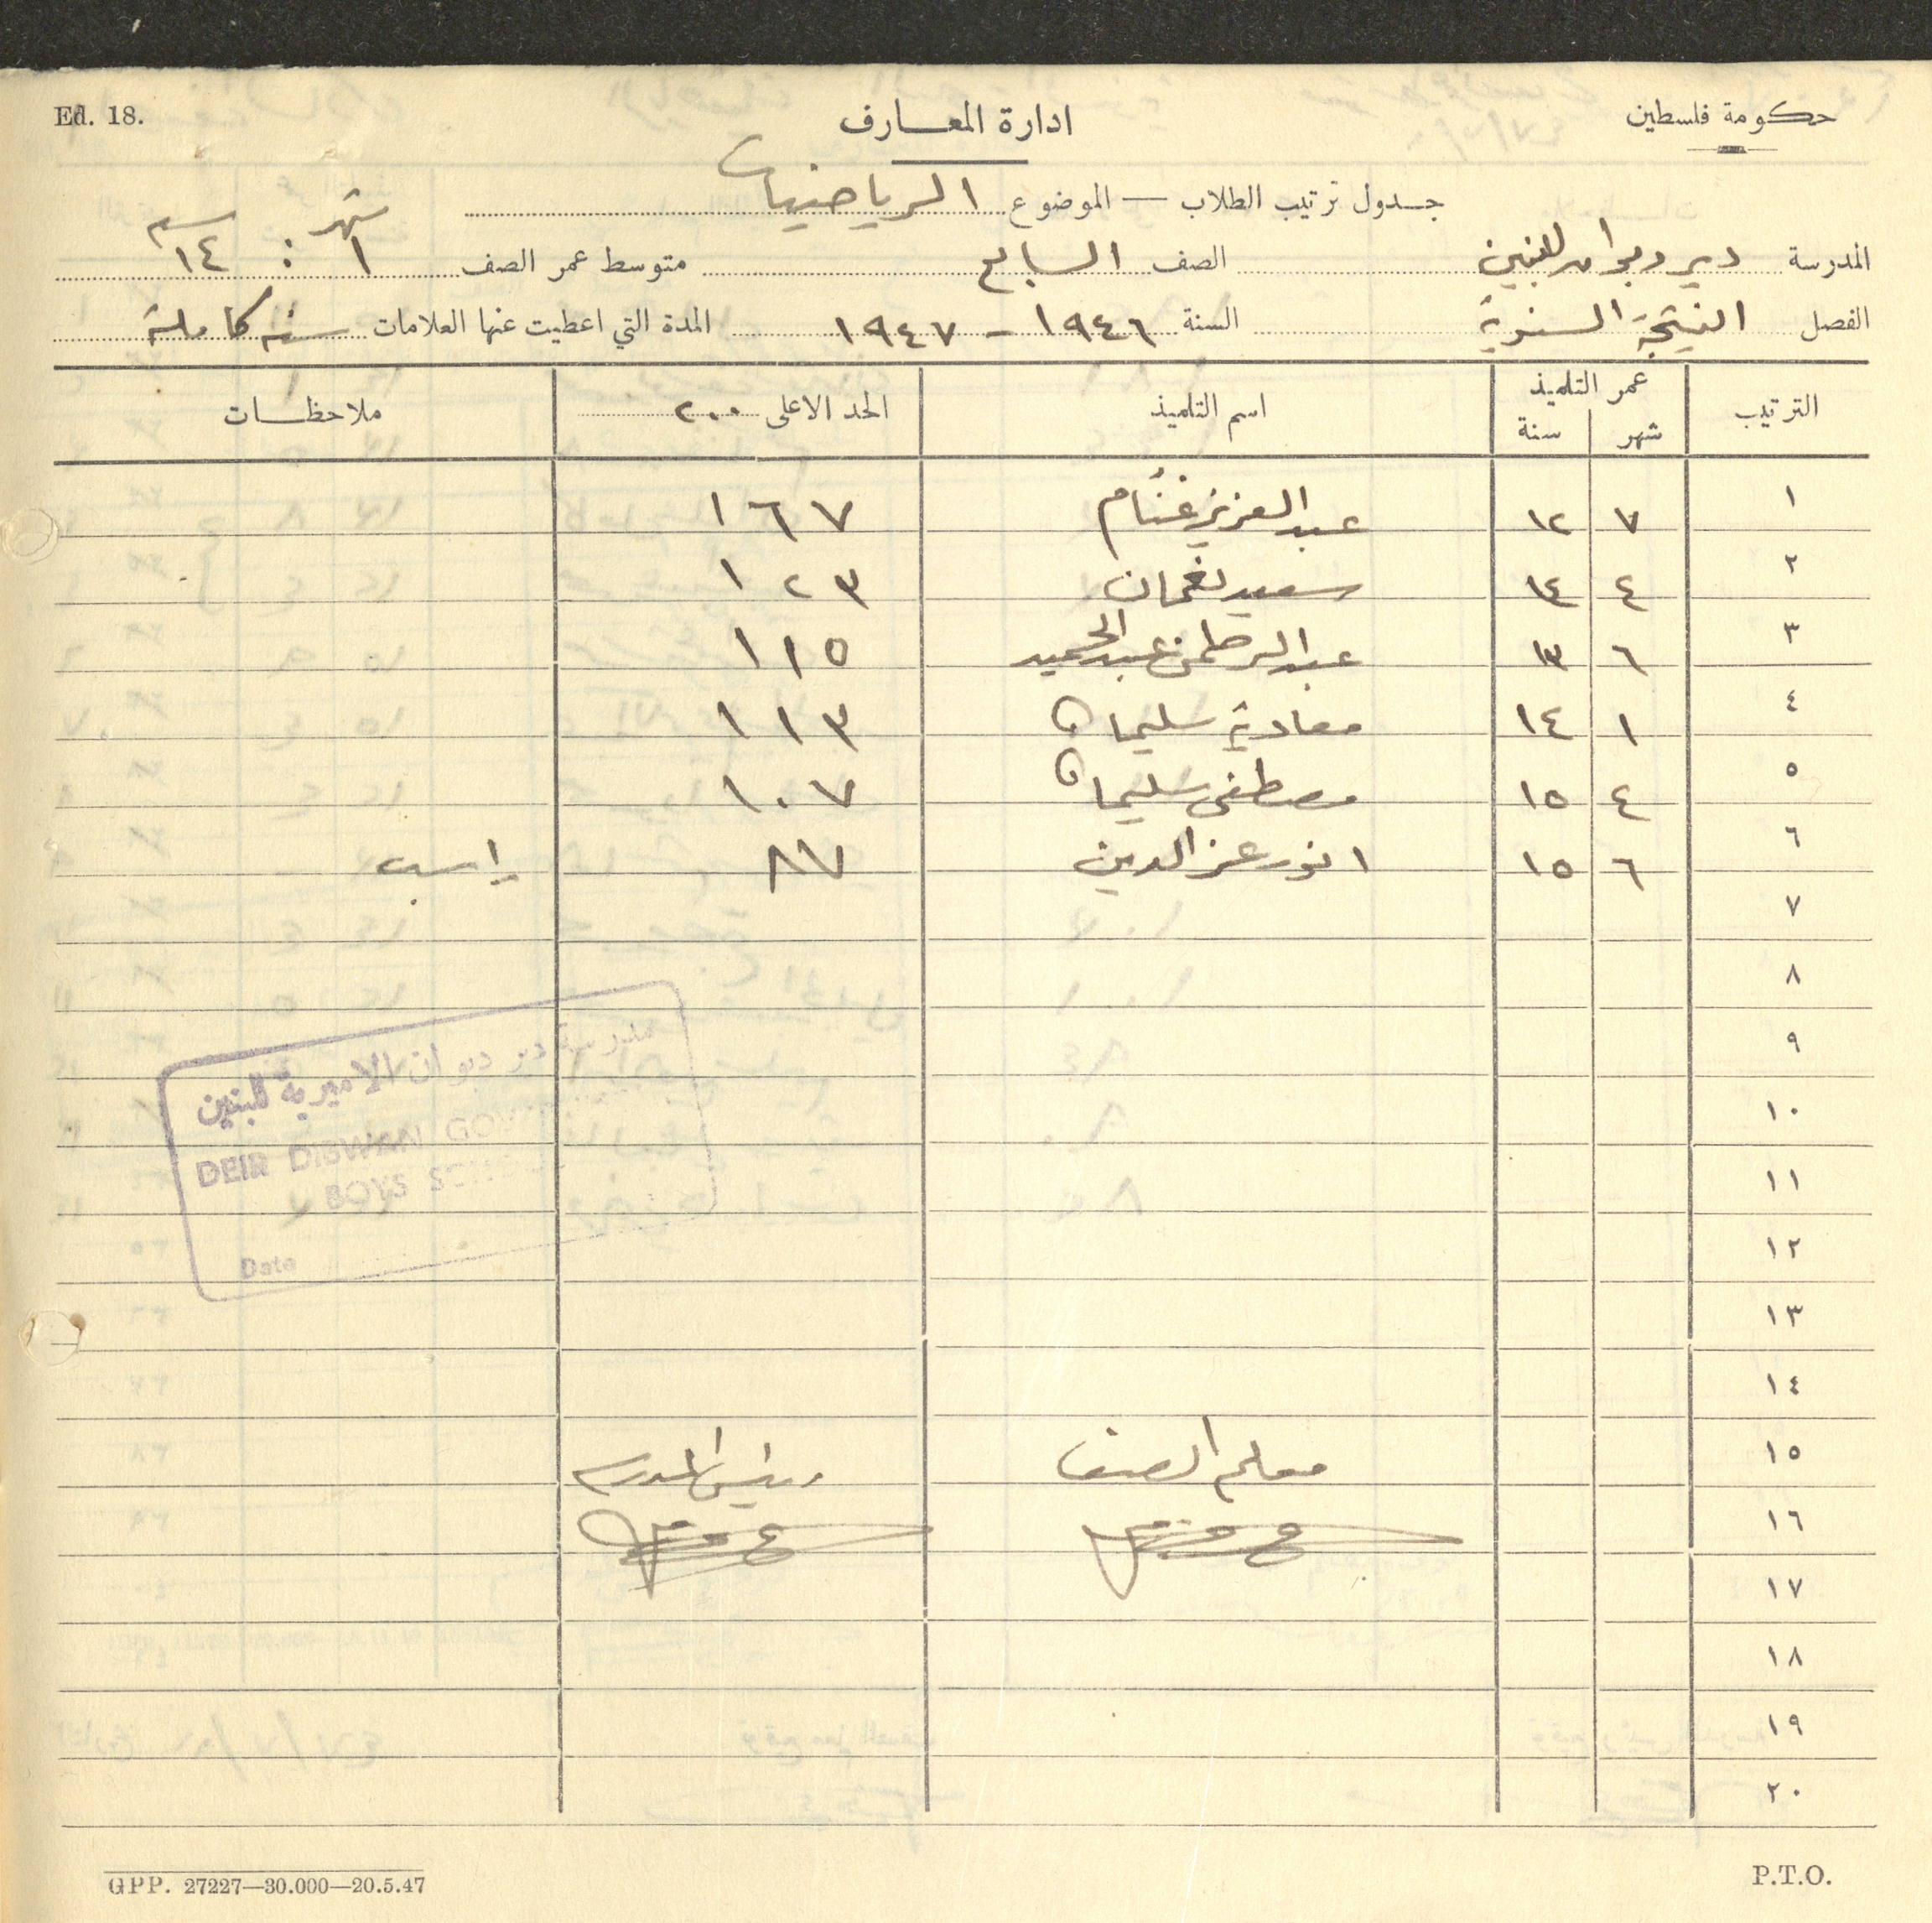 Ed. 18.
ادارة المعارف
حكومة فلسطين
جدول ترتيب الطلاب — الموضوع الرياضيات
المدرسة دير ديوان للبنين الصف السابع متوسط عمر الصف ١ شهر : ١٤ سنه
الفصل النتيجة السنوية السنة ١٩٤٦ - ١٩٤٧ المدة التي اعطيت عنها العلامات سنه كاملة
الترتيب عمر التلميذ شهر سنة اسم التلميذ الحد الاعلى ٢٠٠ ملاحظات
١ ٧ ١٢ عبد العزيز غنام ١٦٧
٢ ٤ ١٤ سعيد نعمان ١٢٣
٣ ٦ ١٣ عبد الرحمن عبد الحميد ١١٥
٤ ١ ١٤ معاوية سليمان ١١٣
٥ ٤ ١٥ مصطفى سليمان ١٠٧
٦ ٦ ١٥ انور عز الدين ٨٧ راسب
٧
٨
٩
١٠
١١
١٢
١٣
١٤
١٥ معلم الصف رئيس المدرسه
١٦
١٧
١٨
١٩
٢٠
مدرسة دير ديوان الاميرية للبنين
DEIR DIBWAN
BOYS
Date
GPP. 27227—30.000—20.5.47
P.T.O.